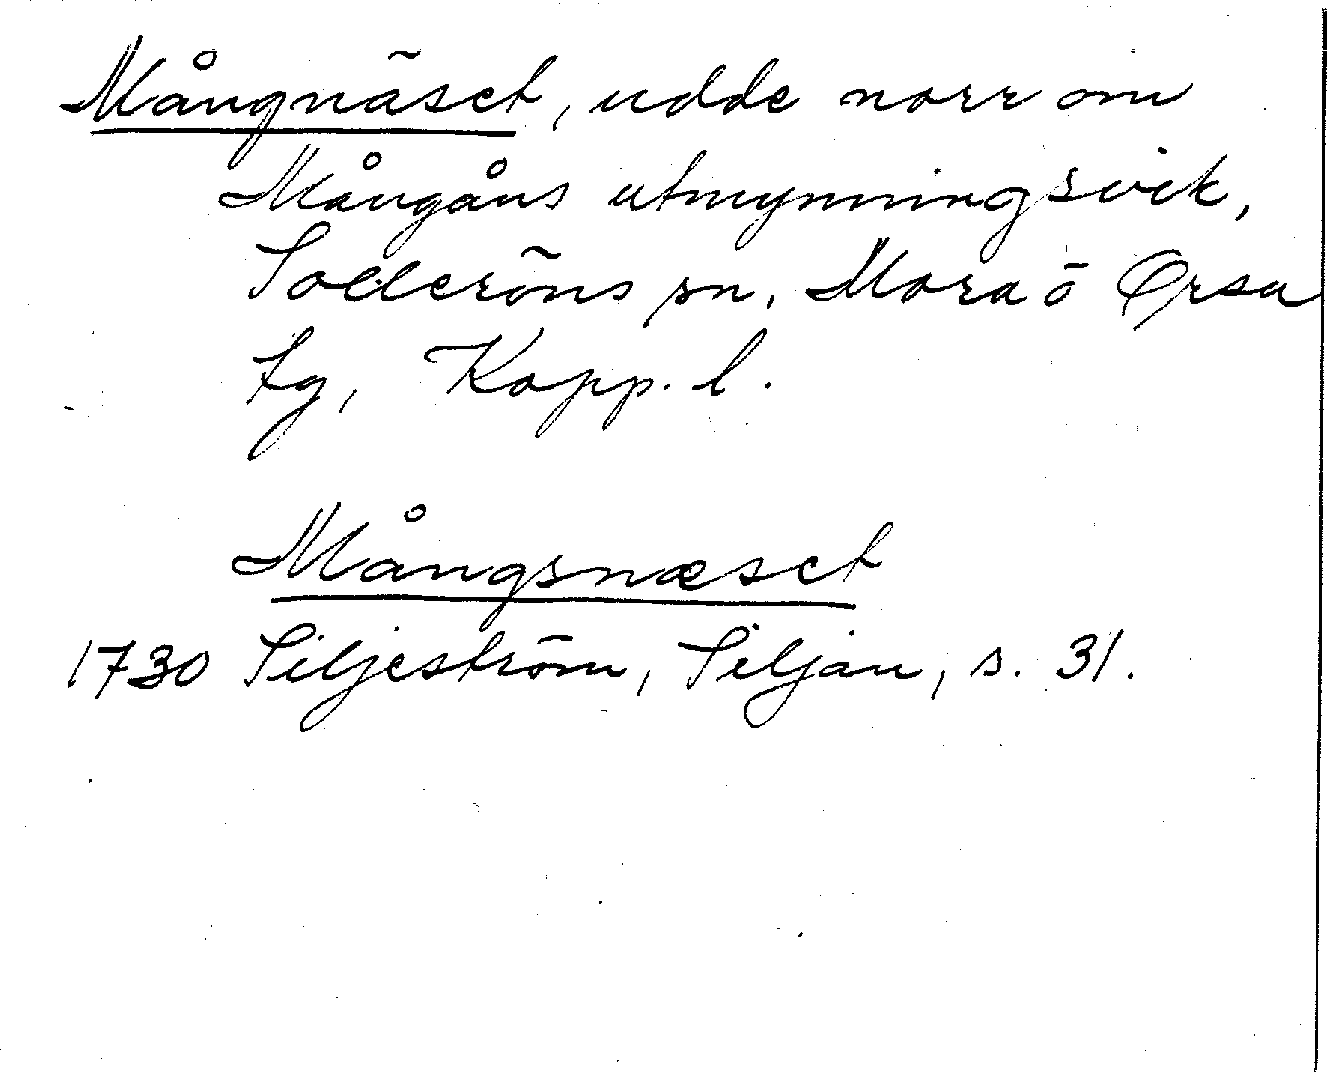 Mångnäset, udde norr om
Mångåns utmynningsvik,
Solleröns sn, Mora ö Orsa
tg, Kopp. l.
Mångsnæset
1730 Siljeström, Siljan, s. 31.